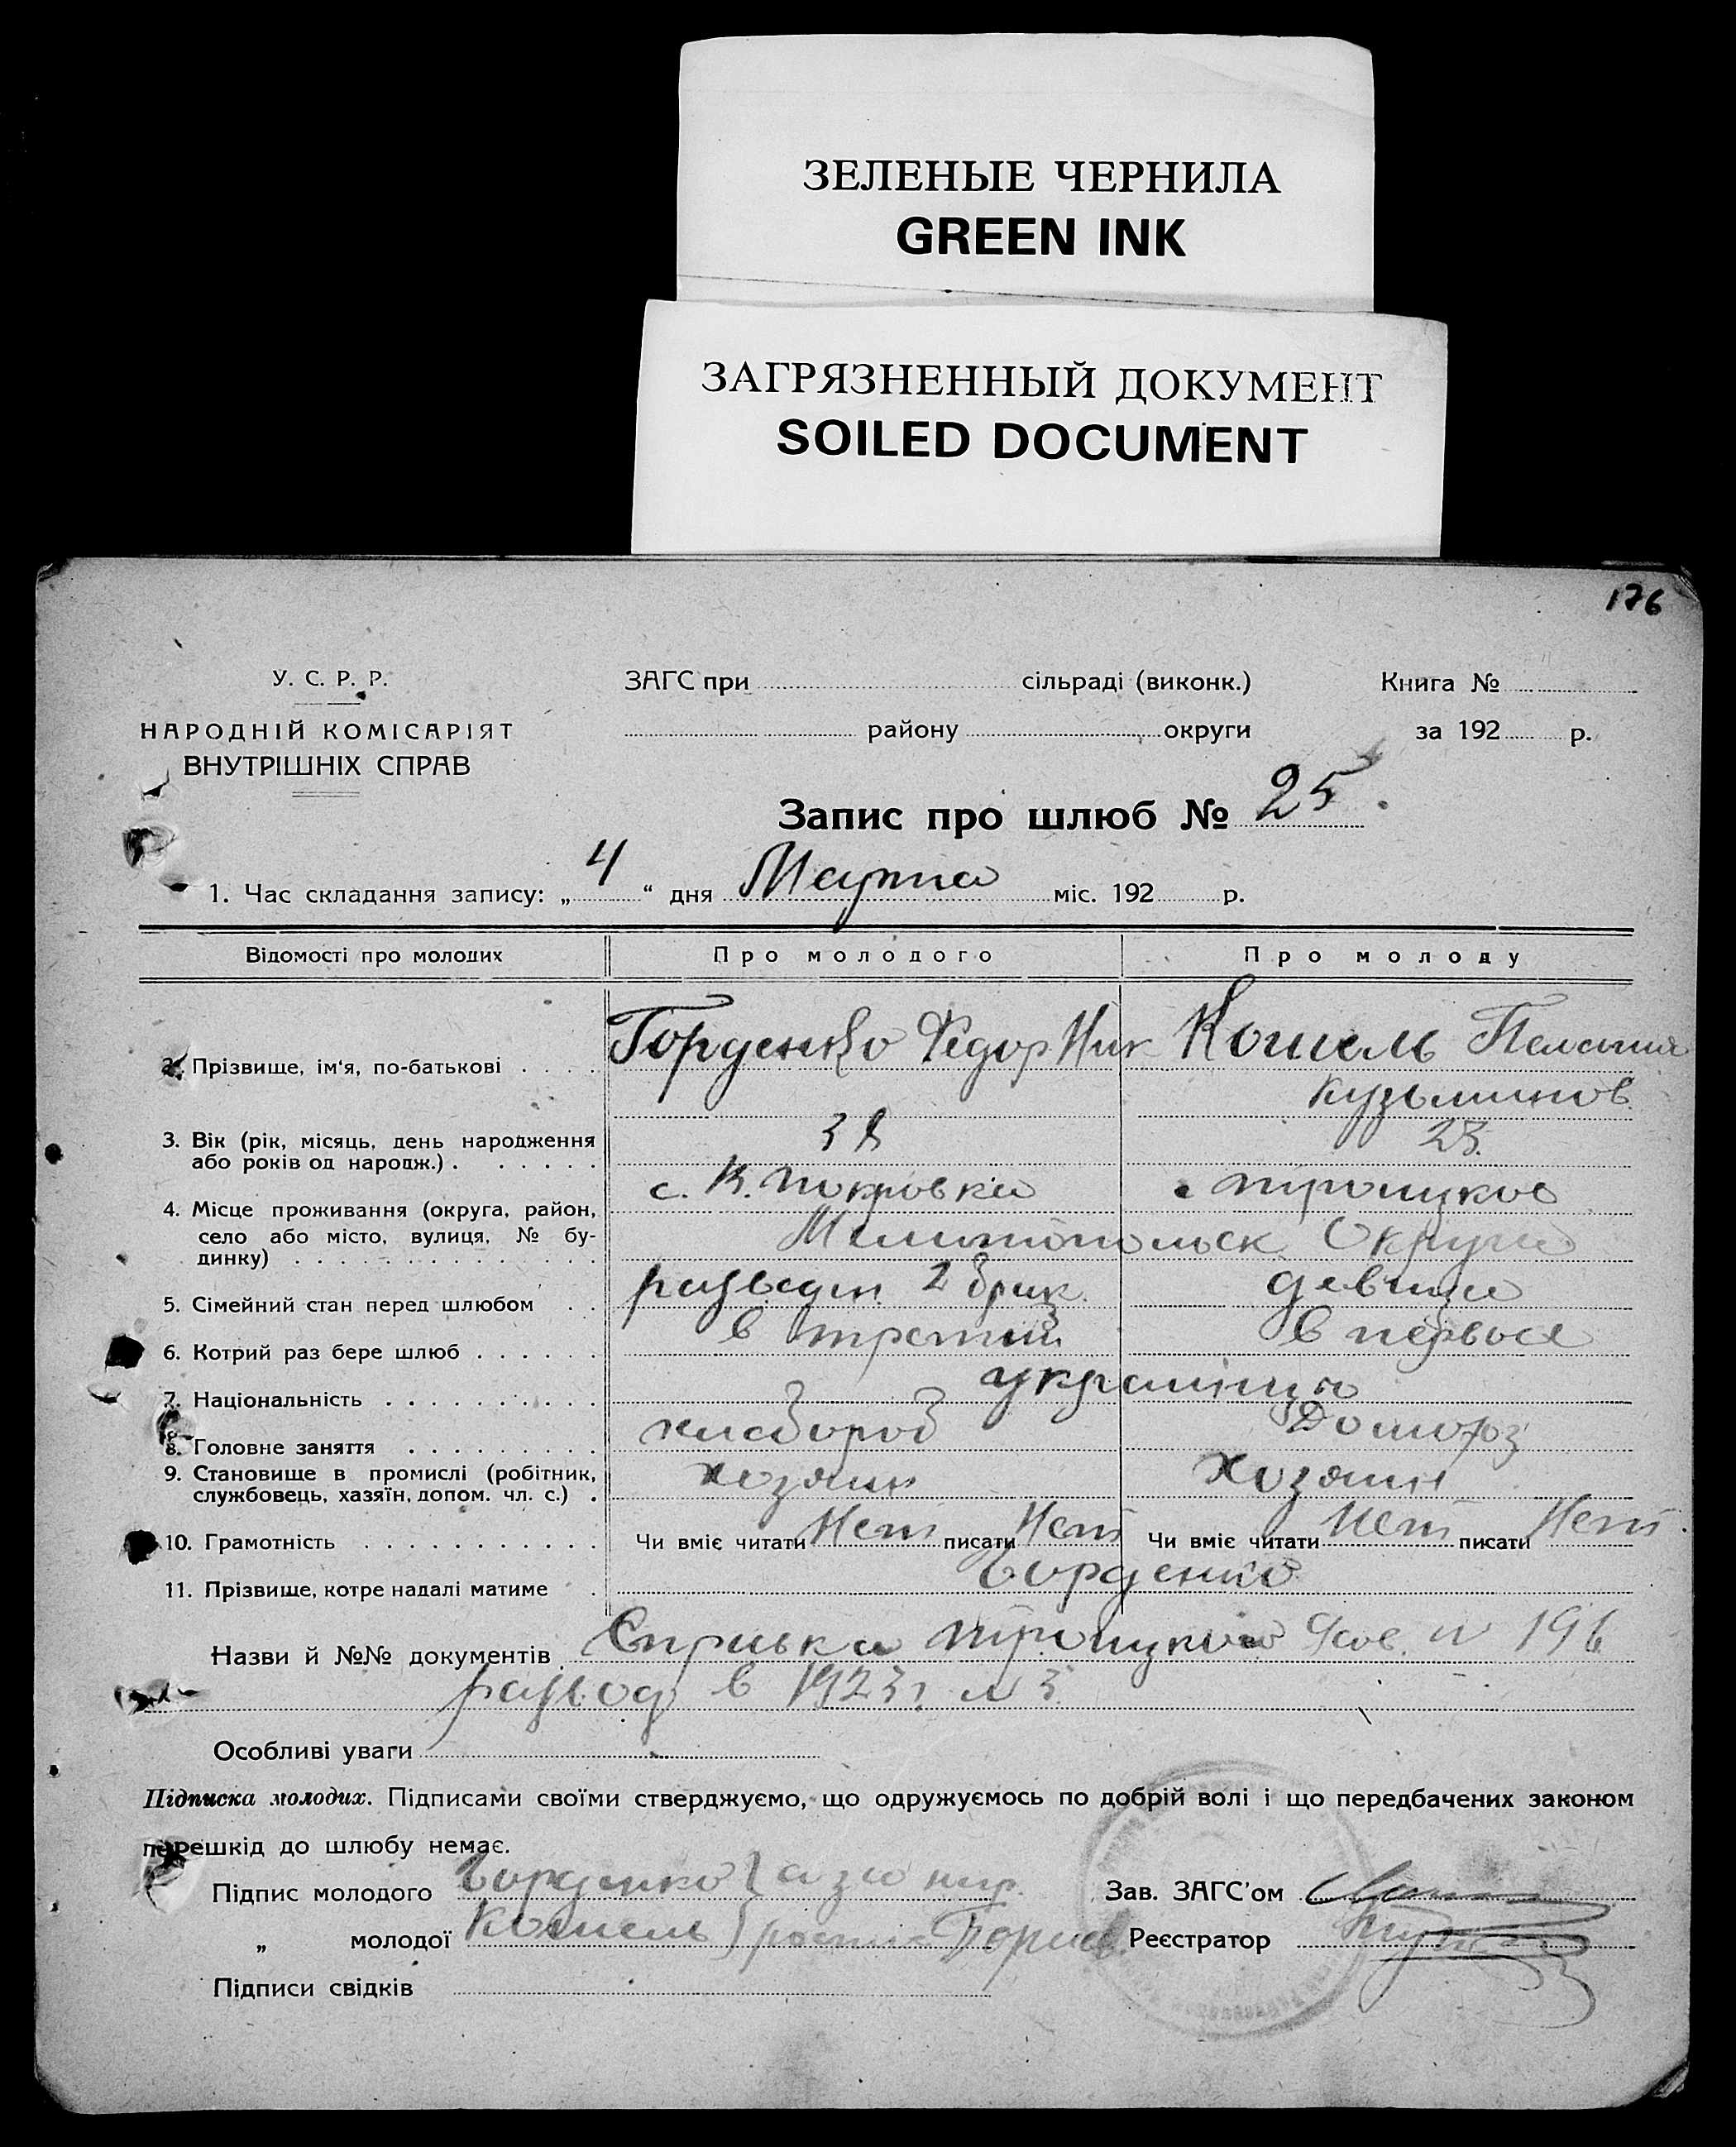 ЗЕЛЕНЫЕ ЧЕРНИЛА
GREEN INK
ЗАГРЯЗНЕННЫЙ ДОКУМЕНТ
SOILED DOCUMENT
176
У. С. Р. Р.
НАРОДНІЙ КОМІСАРІЯТ
ВНУТРІШНІХ СПРАВ
ЗАГС при сільраді (виконк.)
району округи
Книга №
за 192 р.
Запис про шлюб № 25.
1. Час складання запису: „4“ дня Марта міс. 192 р.
Відомості про молодих Про молодого Про молоду
2. Прізвище, ім'я, по-батькові Горденко Федор Ник Кошель Пелагия
Кузьминов.
3. Вік (рік, місяць, день народження 38 23.
або років од народж.)
с. В. Покровка с Троицкое
4. Місце проживання (округа, район,
село або місто, вулиця, № бу- Мелитопольск Округа
динку)
5. Сімейний стан перед шлюбом разведен. 2 брак. девица
6. Котрий раз бере шлюб в третий в первые
7. Національність украинцы
8. Головне заняття хлебороб Домохоз
9. Становище в промислі (робітник, хозяин хозяин
службовець, хазяїн, допом. чл. с.)
10. Грамотність Чи вміє читати Нет писати Нет Чи вміє читати Нет писати Нет.
11. Прізвище, котре надалі матиме Горденко
Назви й №№ документів Справка Троицкого N 196
развод в 1923 г N 3
Особливі уваги
Підписка молодих. Підписами своїми стверджуємо, що одружуємось по добрій волі і що передбачених законом
перешкід до шлюбу немає.
Підпис молодого Горденко а за них Зав. ЗАГС'ом
„ молодої Кошель Реєстратор
Підписи свідків